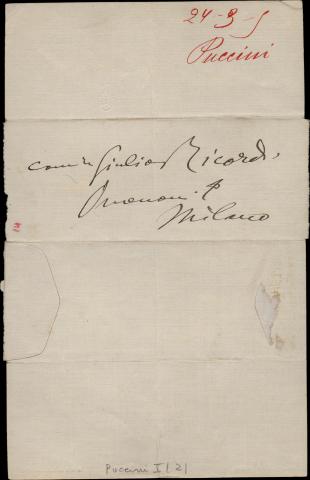 24-3-5
Puccini
com.re Giulio Ricordi,
Omenoni 1
Milano
Puccini I/2/